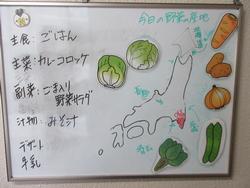 今日の野菜の産地
主食：ごはん
主菜：カレーコロッケ
副菜：ごま入り
野菜サラダ
汁物：みそ汁
デザート
牛乳
北海道